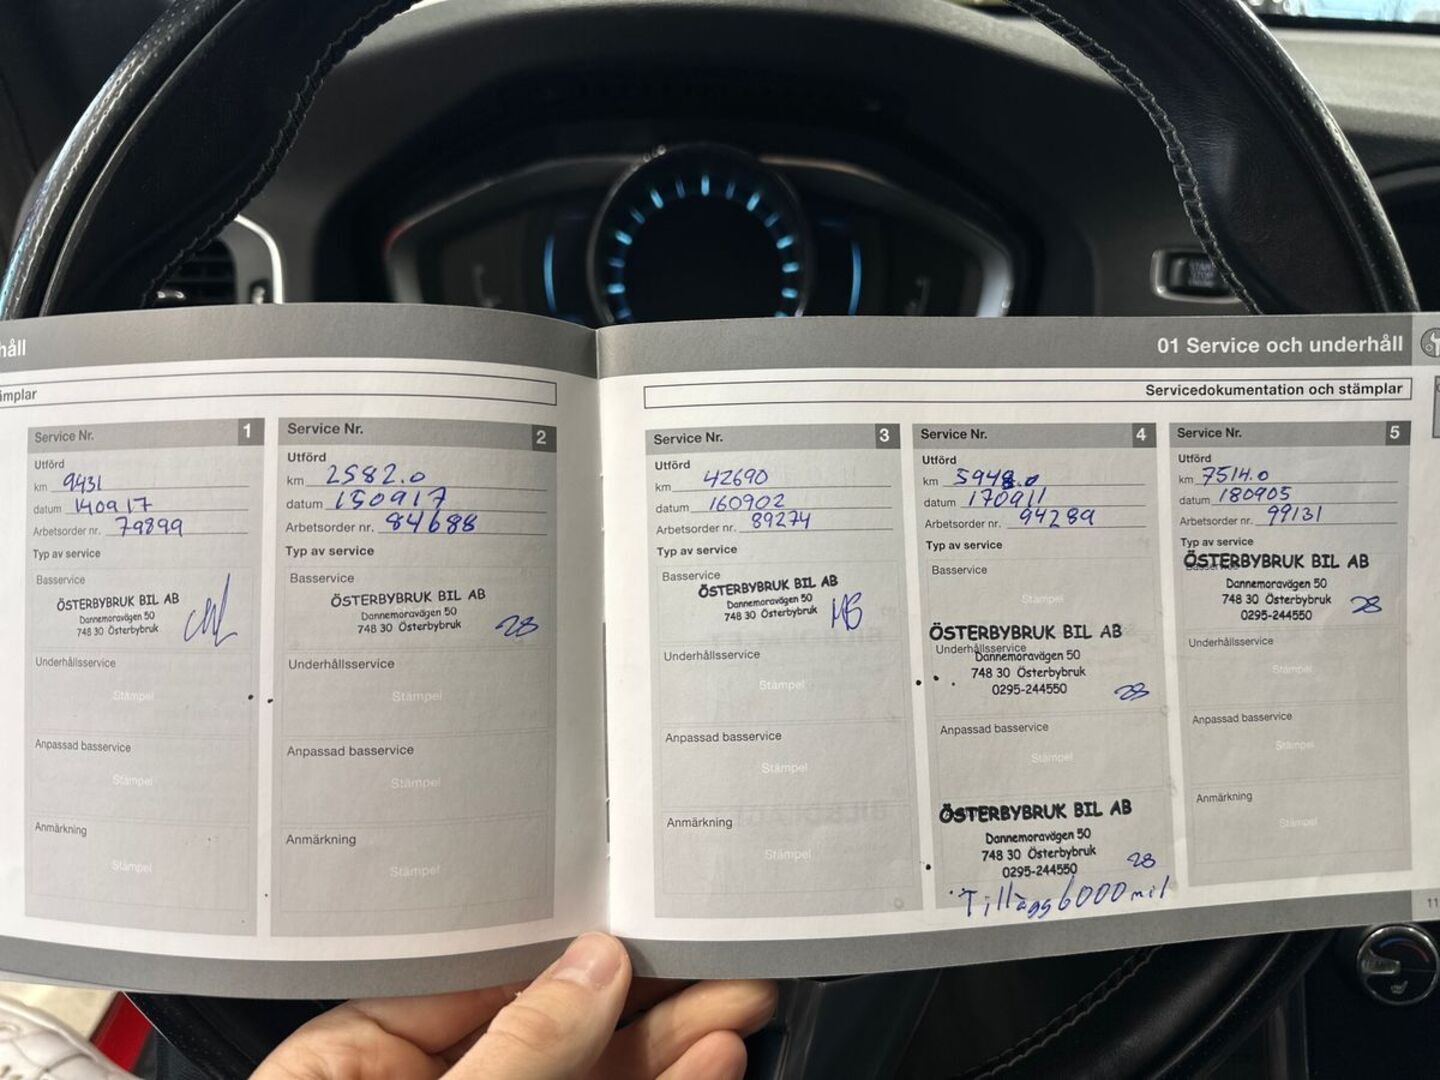 håll
mplar
Service Nr. 1
Utförd
km 9431
datum 140917
Arbetsorder nr. 79899
Typ av service
Basservice
ÖSTERBYBRUK BIL AB
Dannemoravägen 50
748 30 Österbybruk
Underhållsservice
Stämpel
Anpassad basservice
Stämpel
Anmärkning
Stämpel
Service Nr. 2
Utförd
km 2582.0
datum 150917
Arbetsorder nr. 84688
Typ av service
Basservice
ÖSTERBYBRUK BIL AB
Dannemoravägen 50
748 30 Österbybruk
Underhållsservice
Stämpel
Anpassad basservice
Stämpel
Anmärkning
Stämpel
01 Service och underhåll
Servicedokumentation och stämplar
Service Nr. 3
Utförd
km 42690
datum 160902
Arbetsorder nr. 89274
Typ av service
Basservice
ÖSTERBYBRUK BIL AB
Dannemoravägen 50
748 30 Österbybruk
Underhållsservice
Stämpel
Anpassad basservice
Stämpel
Anmärkning
Stämpel
Service Nr. 4
Utförd
km 5948.0
datum 170911
Arbetsorder nr. 94289
Typ av service
Basservice
Stämpel
ÖSTERBYBRUK BIL AB
Underhållsservice
Dannemoravägen 50
748 30 Österbybruk
0295-244550
Anpassad basservice
Stämpel
ÖSTERBYBRUK BIL AB
Dannemoravägen 50
748 30 Österbybruk
0295-244550
Tillägg 6000 mil
Service Nr. 5
Utförd
km 7514.0
datum 180905
Arbetsorder nr. 99131
Typ av service
ÖSTERBYBRUK BIL AB
Basservice
Dannemoravägen 50
748 30 Österbybruk
0295-244550
Underhållsservice
Stämpel
Anpassad basservice
Stämpel
Anmärkning
Stämpel
11